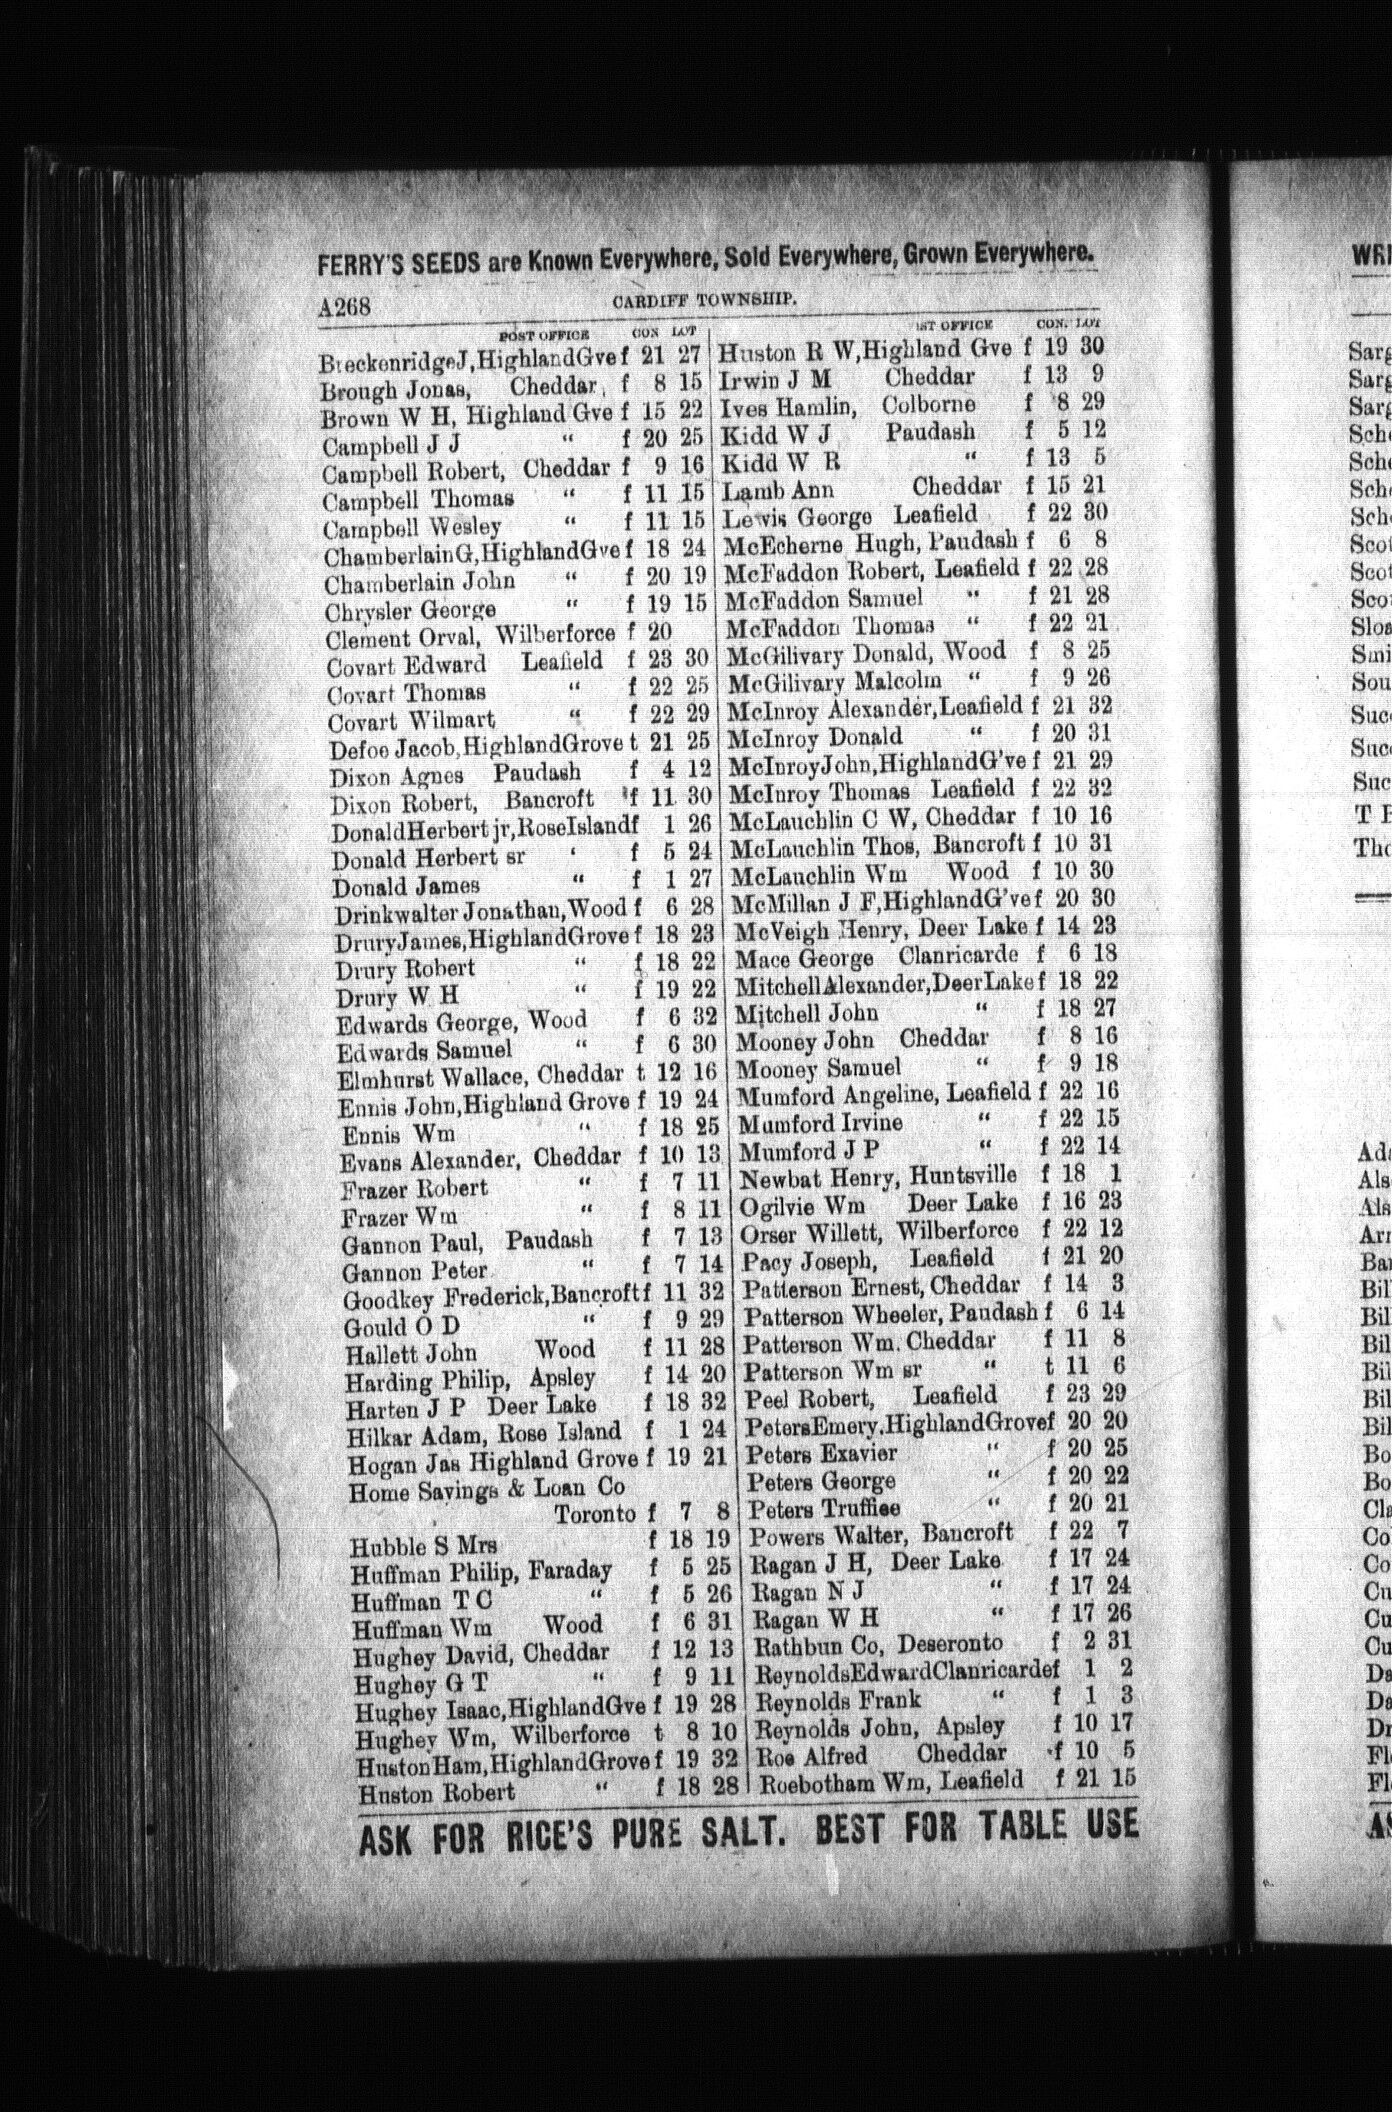 FERRY'S SEEDS are Known Everywhere, Sold Everywhere, Grown Everywhere.
A268 CARDIFF TOWNSHIP.
POST OFFICE CON LOT
Breckenridge J, Highland Gve f 21 27
Brough Jonas, Cheddar, f 8 15
Brown W H, Highland Gve f 15 22
Campbell J J " f 20 25
Campbell Robert, Cheddar f 9 16
Campbell Thomas " f 11 15
Campbell Wesley " f 11 15
Chamberlain G, Highland Gve f 18 24
Chamberlain John " f 20 19
Chrysler George " f 19 15
Clement Orval, Wilberforce f 20
Covart Edward Leafield f 23 30
Covart Thomas " f 22 25
Covart Wilmart " f 22 29
Defoe Jacob, Highland Grove t 21 25
Dixon Agnes Paudash f 4 12
Dixon Robert, Bancroft f 11 30
Donald Herbert jr, Rose Island f 1 26
Donald Herbert sr ' f 5 24
Donald James " f 1 27
Drinkwalter Jonathan, Wood f 6 28
Drury James, Highland Grove f 18 23
Drury Robert " f 18 22
Drury W H " f 19 22
Edwards George, Wood f 6 32
Edwards Samuel " f 6 30
Elmhurst Wallace, Cheddar t 12 16
Ennis John, Highland Grove f 19 24
Ennis Wm " f 18 25
Evans Alexander, Cheddar f 10 13
Frazer Robert " f 7 11
Frazer Wm " f 8 11
Gannon Paul, Paudash f 7 13
Gannon Peter " f 7 14
Goodkey Frederick, Bancroft f 11 32
Gould O D " f 9 29
Hallett John Wood f 11 28
Harding Philip, Apsley f 14 20
Harten J P Deer Lake f 18 32
Hilkar Adam, Rose Island f 1 24
Hogan Jas Highland Grove f 19 21
Home Savings & Loan Co
Toronto f 7 8
Hubble S Mrs f 18 19
Huffman Philip, Faraday f 5 25
Huffman T C " f 5 26
Huffman Wm Wood f 6 31
Hughey David, Cheddar f 12 13
Hughey G T " f 9 11
Hughey Isaac, Highland Gve f 19 28
Hughey Wm, Wilberforce t 8 10
Huston Ham, Highland Grove f 19 32
Huston Robert " f 18 28
OST OFFICE CON. LOT
Huston R W, Highland Gve f 19 30
Irwin J M Cheddar f 13 9
Ives Hamlin, Colborne f 8 29
Kidd W J Paudash f 5 12
Kidd W R " f 13 5
Lamb Ann Cheddar f 15 21
Lewis George Leafield f 22 30
McEcherne Hugh, Paudash f 6 8
McFaddon Robert, Leafield f 22 28
McFaddon Samuel " f 21 28
McFaddon Thomas " f 22 21
McGilivary Donald, Wood f 8 25
McGilivary Malcolm " f 9 26
McInroy Alexander, Leafield f 21 32
McInroy Donald " f 20 31
McInroy John, Highland G've f 21 29
McInroy Thomas Leafield f 22 32
McLauchlin C W, Cheddar f 10 16
McLauchlin Thos, Bancroft f 10 31
McLauchlin Wm Wood f 10 30
McMillan J F, Highland G've f 20 30
McVeigh Henry, Deer Lake f 14 23
Mace George Clanricarde f 6 18
Mitchell Alexander, Deer Lake f 18 22
Mitchell John " f 18 27
Mooney John Cheddar f 8 16
Mooney Samuel " f 9 18
Mumford Angeline, Leafield f 22 16
Mumford Irvine " f 22 15
Mumford J P " f 22 14
Newbat Henry, Huntsville f 18 1
Ogilvie Wm Deer Lake f 16 23
Orser Willett, Wilberforce f 22 12
Pacy Joseph, Leafield f 21 20
Patterson Ernest, Cheddar f 14 3
Patterson Wheeler, Paudash f 6 14
Patterson Wm. Cheddar f 11 8
Patterson Wm sr " t 11 6
Peel Robert, Leafield f 23 29
Peters Emery, Highland Grove f 20 20
Peters Exavier " f 20 25
Peters George " f 20 22
Peters Truffiee " f 20 21
Powers Walter, Bancroft f 22 7
Ragan J H, Deer Lake f 17 24
Ragan N J " f 17 24
Ragan W H " f 17 26
Rathbun Co, Deseronto f 2 31
Reynolds Edward Clanricarde f 1 2
Reynolds Frank " f 1 3
Reynolds John, Apsley f 10 17
Roe Alfred Cheddar f 10 5
Roebotham Wm, Leafield f 21 15
ASK FOR RICE'S PURE SALT. BEST FOR TABLE USE